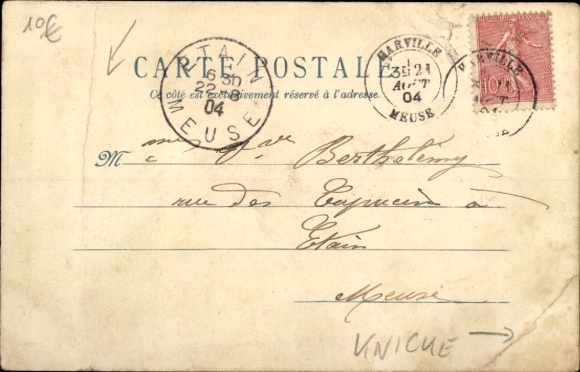 10€
CARTE POSTALE
Ce côté est exclusivement réservé à l'adresse.
ETAIN
6 30
22-8
04
MEUSE
HARVILLE
21
AOUT
04
MEUSE
HARVILLE
10
M me Vve Berthélémy
rue des Capucins à
Etain
Meuse
KNICKE →